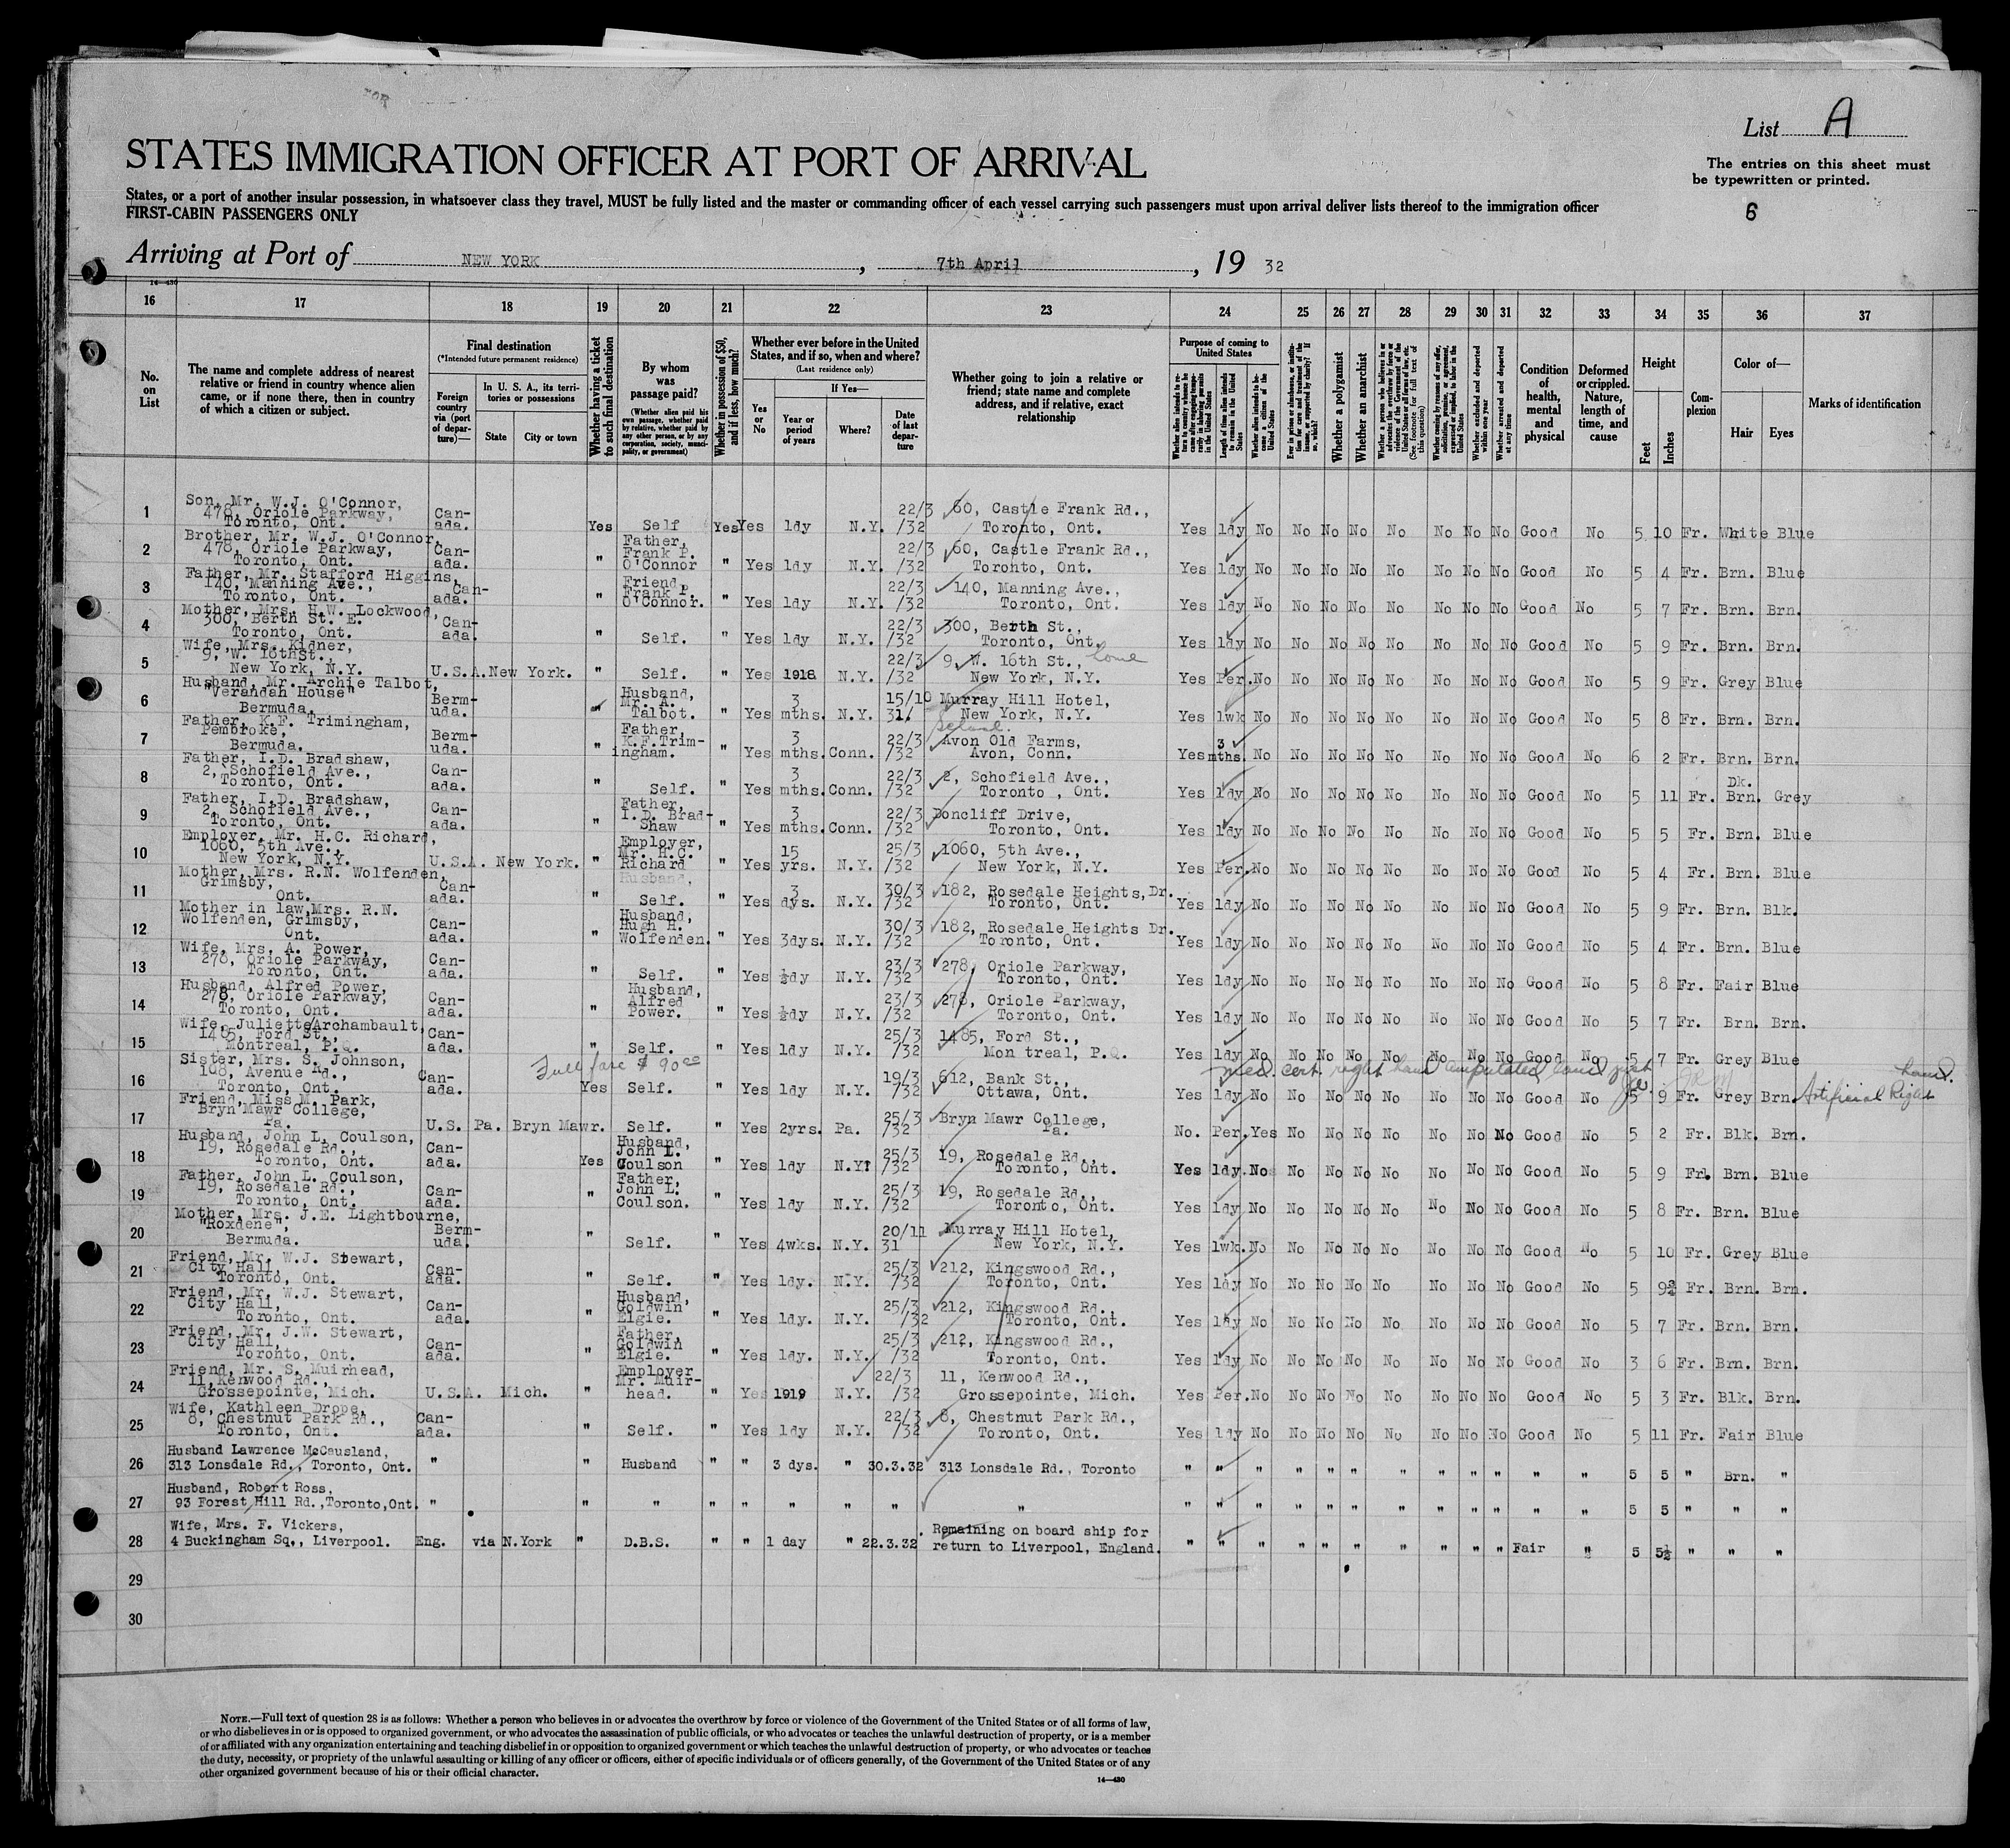 List A
STATES IMMIGRATION OFFICER AT PORT OF ARRIVAL
The entries on this sheet must
be typewritten or printed.
States, or a port of another insular possession, in whatsoever class they travel, MUST be fully listed and the master or commanding officer of each vessel carrying such passengers must upon arrival deliver lists thereof to the immigration officer
FIRST-CABIN PASSENGERS ONLY
6
Arriving at Port of NEW YORK, 7th April, 19 32
14—430
16 17 18 19 20 21 22 23 24 25 26 27 28 29 30 31 32 33 34 35 36 37
No. on List
The name and complete address of nearest relative or friend in country whence alien came, or if none there, then in country of which a citizen or subject.
Final destination
(*Intended future permanent residence)
Foreign country via (port of departure)—
In U. S. A., its territories or possessions
State
City or town
Whether having a ticket to such final destination
By whom was passage paid?
(Whether alien paid his own passage, whether paid by relative, whether paid by any other person, or by any corporation, society, municipality, or government)
Whether in possession of $50, and if less, how much?
Whether ever before in the United States, and if so, when and where?
(Last residence only)
Yes or No
If Yes—
Year or period of years
Where?
Date of last departure
Whether going to join a relative or friend; state name and complete address, and if relative, exact relationship
Purpose of coming to United States
Whether alien intends to return to country whence he came after engaging temporarily in laboring pursuits in the United States
Length of time alien intends to remain in the United States
Whether alien intends to become a citizen of the United States
Ever in prison or almshouse, or institution for care and treatment of the insane, or supported by charity? If so, which?
Whether a polygamist
Whether an anarchist
Whether a person who believes in or advocates the overthrow by force or violence of the Government of the United States or all forms of law, etc. (See footnote for full text of this question)
Whether coming by reasons of any offer, solicitation, promise, or agreement, expressed or implied, to labor in the United States
Whether excluded and deported within one year
Whether arrested and deported at any time
Condition of health, mental and physical
Deformed or crippled. Nature, length of time, and cause
Height
Feet
Inches
Complexion
Color of—
Hair
Eyes
Marks of identification
1 Son, Mr. W.J. O'Connor, 478, Oriole Parkway, Toronto, Ont. Canada. Yes Self Yes Yes 1dy N.Y. 22/3/32 60, Castle Frank Rd., Toronto, Ont. Yes 1dy No No No No No No No No Good No 5 10 Fr. White Blue
2 Brother, Mr. W.J. O'Connor, 478, Oriole Parkway, Toronto, Ont. Canada. " Father, Frank P. O'Connor " Yes 1dy N.Y. 22/3/32 60, Castle Frank Rd., Toronto, Ont. Yes 1dy No No No No No No No No Good No 5 4 Fr. Brn. Blue
3 Father, Mr. Stafford Higgins, 140, Manning Ave., Toronto, Ont. Canada. " Friend, Frank P. O'Connor. " Yes 1dy N.Y. 22/3/32 140, Manning Ave., Toronto, Ont. Yes 1dy No No No No No No No No Good No 5 7 Fr. Brn. Brn.
4 Mother, Mrs. H.W. Lockwood, 300, Berth St. E. Toronto, Ont. Canada. " Self. " Yes 1dy N.Y. 22/3/32 300, Berth St., Toronto, Ont. Yes 1dy No No No No No No No No Good No 5 9 Fr. Brn. Brn.
5 Wife, Mrs. Kidner, 9, W. 16th St. New York, N.Y. U.S.A. New York. " Self. " Yes 1918 N.Y. 22/3/32 9, W. 16th St., home New York, N.Y. Yes Per. No No No No No No No No Good No 5 9 Fr. Grey Blue
6 Husband, Mr. Archie Talbot, "Verandah House" Bermuda. Bermuda. " Husband, Mr. A. Talbot. " Yes 3 mths. N.Y. 15/10 31. Murray Hill Hotel, New York, N.Y. Yes 1wk No No No No No No No No Good No 5 8 Fr. Brn. Brn.
7 Father, K.F. Trimingham, Pembroke, Bermuda. Bermuda. " Father, K.F. Trimingham. " Yes 3 mths. Conn. 22/3/32 School. Avon Old Farms, Avon, Conn. Yes 3 mths. No No No No No No No No Good No 6 2 Fr. Brn. Brn.
8 Father, I.D. Bradshaw, 2, Schofield Ave., Toronto, Ont. Canada. " Self. " Yes 3 mths. Conn. 22/3/32 2, Schofield Ave., Toronto , Ont. Yes 1dy No No No No No No No No Good No 5 11 Fr. Dk. Brn. Grey
9 Father, I.D. Bradshaw, 2, Schofield Ave., Toronto, Ont. Canada. " Father, I.D. Brad-Shaw " Yes 3 mths. Conn. 22/3/32 Doncliff Drive, Toronto, Ont. Yes 1dy No No No No No No No No Good No 5 5 Fr. Brn. Blue
10 Employer, Mr. H.C. Richard, 1060, 5th Ave., New York, N.Y. U.S.A. New York. " Employer, Mr. H.C. Richard " Yes 15 yrs. N.Y. 25/3/32 1060, 5th Ave., New York, N.Y. Yes Per. No No No No No No No No Good No 5 4 Fr. Brn. Blue
11 Mother, Mrs. R.N. Wolfenden, Grimsby, Ont. Canada. " Husband, Self. " Yes 3 dys. N.Y. 30/3/32 182, Rosedale Heights, Dr. Toronto, Ont. Yes 1dy No No No No No No No No Good No 5 9 Fr. Brn. Blk.
12 Mother in law, Mrs. R.N. Wolfenden, Grimsby, Ont. Canada. " Husband, Hugh H. Wolfenden. " Yes 3dys. N.Y. 30/3/32 182, Rosedale Heights Dr. Toronto, Ont. Yes 1dy No No No No No No No No Good No 5 4 Fr. Brn. Blue
13 Wife, Mrs. A. Power, 278, Oriole Parkway, Toronto, Ont. Canada. " Self. " Yes ½dy N.Y. 23/3/32 278, Oriole Parkway, Toronto, Ont. Yes 1dy No No No No No No No No Good No 5 8 Fr. Fair Blue
14 Husband, Alfred Power, 278, Oriole Parkway, Toronto, Ont. Canada. " Husband, Alfred Power. " Yes ½dy N.Y. 23/3/32 278, Oriole Parkway, Toronto, Ont. Yes 1dy No No No No No No No No Good No 5 7 Fr. Brn. Brn.
15 Wife, Juliette Archambault, 1485, Ford St., Montreal, P.Q. Canada. " Self. " Yes 1dy N.Y. 25/3/32 1485, Ford St., Mon treal, P.Q. Yes 1dy No No No No No No No No Good No 5 7 Fr. Grey Blue
Full fare $ 90.00 med. cert. right hand amputated
16 Sister, Mrs. S. Johnson, 108, Avenue Rd., Toronto, Ont. Canada. Yes Self. " Yes 1dy N.Y. 19/3/32 612, Bank St., Ottawa, Ont. Yes 1dy No No No No No No No No Good No 5 9 Fr. Grey Brn. Artificial Right hand.
17 Friend, Miss M. Park, Bryn Mawr College, Pa. U.S. Pa. Bryn Mawr. Self. " Yes 2yrs. Pa. 25/3/32 Bryn Mawr College, Pa. No. Per. Yes No No No No No No No Good No 5 2 Fr. Blk. Brn.
18 Husband, John L. Coulson, 19, Rosedale Rd., Toronto, Ont. Canada. Yes Husband, John L. Coulson " Yes 1dy N.Y. 25/3/32 19, Rosedale Rd., Toronto, Ont. Yes 1dy. No No No No No No No No Good No 5 9 Fr. Brn. Blue
19 Father, John L. Coulson, 19, Rosedale Rd., Toronto, Ont. Canada. " Father, John L. Coulson. " Yes 1dy N.Y. 25/3/32 19, Rosedale Rd., Toronto, Ont. Yes 1dy No No No No No No No No Good No 5 8 Fr. Brn. Blue
20 Mother, Mrs. J.E. Lightbourne, "Roxdene", Bermuda. Bermuda. " Self. " Yes 4wks. N.Y. 20/11 31 Murray Hill Hotel, New York, N.Y. Yes 1wk. No No No No No No No No Good No 5 10 Fr. Grey Blue
21 Friend, Mr. W.J. Stewart, City Hall, Toronto, Ont. Canada. " Self. " Yes 1dy. N.Y. 25/3/32 212, Kingswood Rd., Toronto, Ont. Yes 1dy No No No No No No No No Good No 5 9½ Fr. Brn. Brn.
22 Friend, Mr. W.J. Stewart, City Hall, Toronto, Ont. Canada. " Husband, Goldwin Elgie. " Yes 1dy. N.Y. 25/3/32 212, Kingswood Rd., Toronto, Ont. Yes 1dy No No No No No No No No Good No 5 7 Fr. Brn. Brn.
23 Friend, Mr. J.W. Stewart, City Hall, Toronto, Ont. Canada. " Father, Goldwin Elgie. " Yes 1dy. N.Y. 25/3/32 212, Kingswood Rd., Toronto, Ont. Yes 1dy No No No No No No No No Good No 3 6 Fr. Brn. Brn.
24 Friend, Mr. S. Muirhead, 11, Kenwood Rd., Grossepointe, Mich. U.S.A. Mich. " Employer Mr. Muirhead. " Yes 1919 N.Y. 22/3/32 11, Kenwood Rd., Grossepointe, Mich. Yes Per. No No No No No No No No Good No 5 3 Fr. Blk. Brn.
25 Wife, Kathleen Drope, 8, Chestnut Park Rd., Toronto, Ont. Canada. " Self. " Yes 1dy N.Y. 22/3/32 8, Chestnut Park Rd., Toronto, Ont. Yes 1dy No No No No No No No No Good No 5 11 Fr. Fair Blue
26 Husband Lawrence McCausland, 313 Lonsdale Rd., Toronto, Ont. " " Husband " " 3 dys. " 30.3.32 313 Lonsdale Rd., Toronto " " " " " " " " " " " " 5 5 " Brn. "
27 Husband, Robert Ross, 93 Forest Hill Rd., Toronto, Ont. " " " " " " " " " " " " " " " " " " " " " 5 5 " " "
28 Wife, Mrs. F. Vickers, 4 Buckingham Sq., Liverpool. Eng. via N.York " D.B.S. " " 1 day " 22.3.32 Remaining on board ship for return to Liverpool, England. " " " " " " " " " " Fair " 5 5½ " " "
29
30
NOTE.—Full text of question 28 is as follows: Whether a person who believes in or advocates the overthrow by force or violence of the Government of the United States or of all forms of law,
or who disbelieves in or is opposed to organized government, or who advocates the assassination of public officials, or who advocates or teaches the unlawful destruction of property, or is a member
of or affiliated with any organization entertaining and teaching disbelief in or opposition to organized government or which teaches the unlawful destruction of property, or who advocates or teaches
the duty, necessity, or propriety of the unlawful assaulting or killing of any officer or officers, either of specific individuals or of officers generally, of the Government of the United States or of any
other organized government because of his or their official character.
14—430